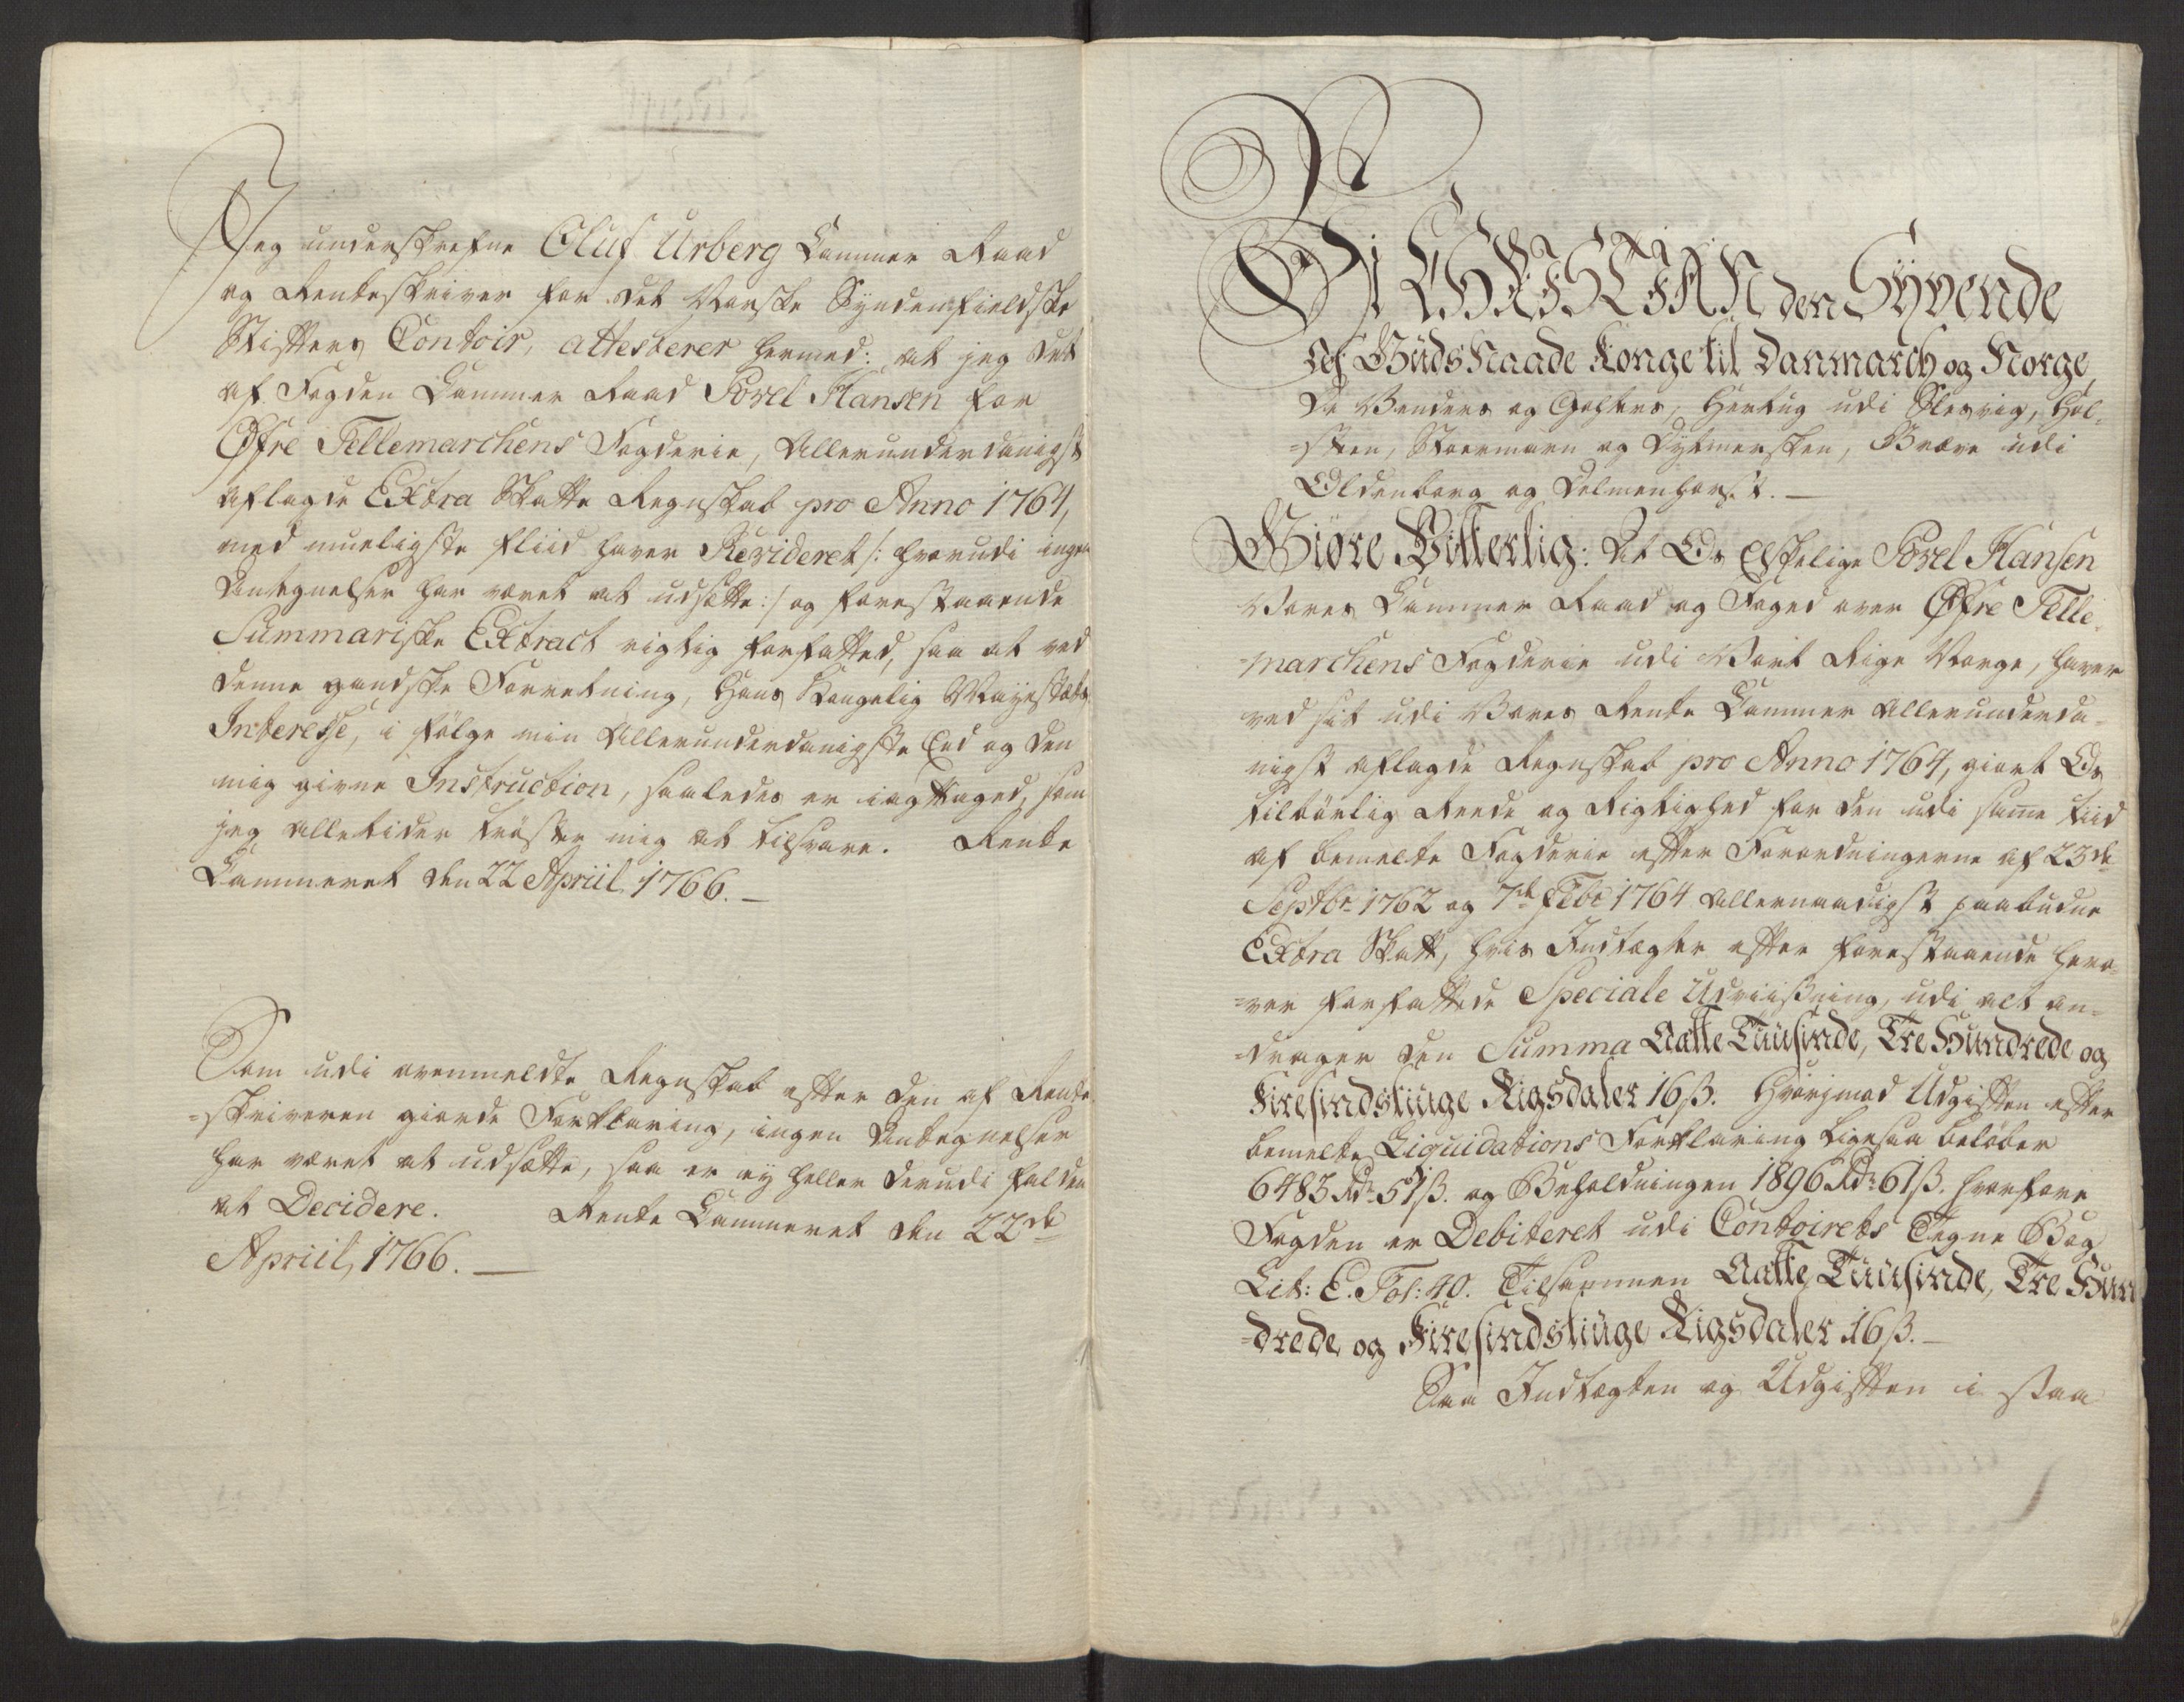 Jeg underskrefne Oluf Urberg Cammer Raad
og Renteskriver for det Norske Syndenfieldske
Stifters Contoir, attesterer hermed: at jeg det
af Fogden Cammer Raad Povel Hansen for
Øfre Tellemarchens Fogderie, Allerunderdanigst
aflagde Extra Skatte Regnskab pro Anno 1764,
med mueligste Fliid haver Revideret /: hvorudi ingen
Antegnelser har været at udsætte :/ og forestaaende
Summariske Extract rigtig forfatted, saa at ved
denne gandske Forretning, Hans Kongelig Mayestæts
Interesse, i følge min Allerunderdanigste Eed og den
mig givne Instruction, saaledes er iagttaged, som
jeg alletider trøster mig at tilsvare. Rente
Cammeret den 22 Apriil 1766.—
Som udi ovenmeldte Regnskab efter den af Rente
=skriveren giorde Forklaring, ingen Antegnelser
har været at udsætte, saa er ey heller derudi falden
at Decidere. Rente Cammeret den 22de
Apriil, 1766.—
Vi CHRISTIAN den Syvende
Af Guds Naade Konge til Danmarch og Norge,
De Venders og Gothers, Hertug udi Slesvig, Hol=
=sten, Stormarn og Dytmersken, Greve udi
Oldenborg og Delmenhorst.—
Giøre Vitterlig: At Os Elskelige Povel Hansen
Vores Cammer Raad og Foged over Øfre Telle=
=marchens Fogderie udi Vort Rige Norge, haver
ved sit udi Vores Rente Cammer Allerunderda=
nigst aflagde Regnskab pro Anno 1764, giort Os
tilbørlig Reede og Rigtighed for den udi same tiid
af bemelte Fogderie efter Forordningerne af 23de
Septbr 1762 og 7de Febr 1764 Allernaadigst paabudne
Extra Skatt, hvis Indtægter efter forestaaende hero=
=ver forfattede Speciale Udviisning, udi alt an=
=drager den Summa Aatte Tuusinde, Tre Hundrede og
Firesindstiuge Rigsdaler 16ß. Hvorjmod Udgiften efter
bemelte Liquidations Forklaring ligesaa beløber
6483 Rdr 51ß. og Beholdningen 1896 Rdr 61ß. hvorfore
Fogden er Debiteret udi Contoirets Tegne Bog
Lit: C. Fol: 40. Tilsammen Aatte Tuusinde, Tre Hun
=drede og Firesindstiuge Rigsdaler 16ß.—
Saa Indtægten og Udgiften i saa